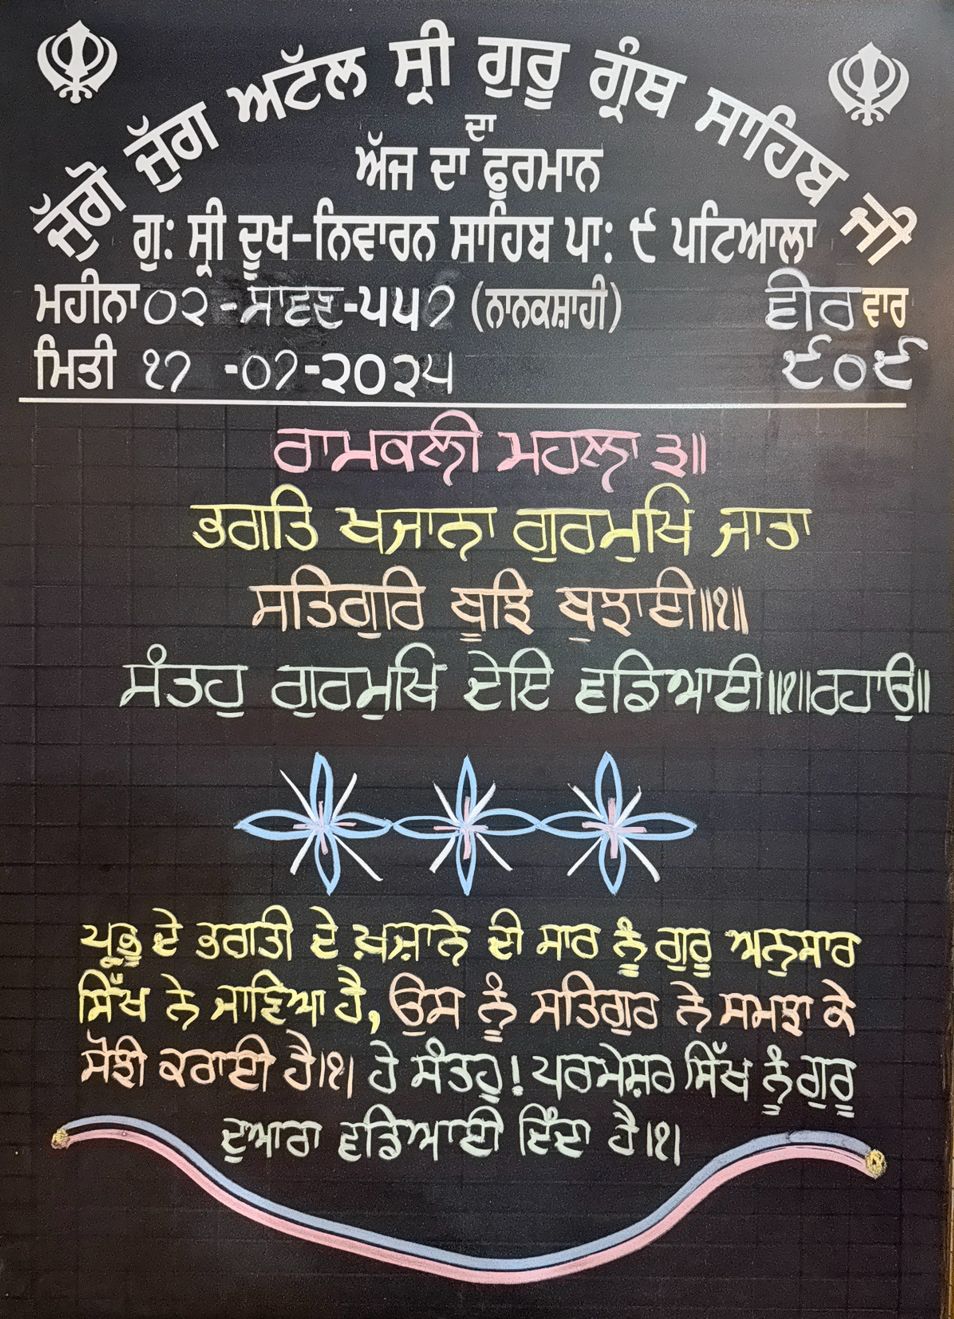 ਜੁੱਗੋ ਜੁੱਗ ਅਟੱਲ ਸ੍ਰੀ ਗੁਰੂ ਗ੍ਰੰਥ ਸਾਹਿਬ ਜੀ
ਦਾ
ਅੱਜ ਦਾ ਫੂਰਮਾਨ
ਗੁ: ਸ੍ਰੀ ਦੂਖ-ਨਿਵਾਰਨ ਸਾਹਿਬ ਪਾ: ੯ ਪਟਿਆਲਾ
ਮਹੀਨਾ ੦੨ - ਸਾਵਣ - ੫੫੭ (ਨਾਨਕਸ਼ਾਹੀ) ਵੀਰ ਵਾਰ
ਮਿਤੀ ੧੭ -੦੭-੨੦੨੫ ੯੦੯
ਰਾਮਕਲੀ ਮਹਲਾ ੩॥
ਭਗਤਿ ਖਜਾਨਾ ਗੁਰਮੁਖਿ ਜਾਤਾ
ਸਤਿਗੁਰਿ ਬੂਝਿ ਬੁਝਾਈ॥੧॥
ਸੰਤਹੁ ਗੁਰਮੁਖਿ ਦੇਇ ਵਡਿਆਈ॥੧॥ਰਹਾਉ॥
ਪ੍ਰਭੂ ਦੇ ਭਗਤੀ ਦੇ ਖ਼ਜ਼ਾਨੇ ਦੀ ਸਾਰ ਨੂੰ ਗੁਰੂ ਅਨੁਸਾਰ
ਸਿੱਖ ਨੇ ਜਾਣਿਆ ਹੈ, ਉਸ ਨੂੰ ਸਤਿਗੁਰ ਨੇ ਸਮਝਾ ਕੇ
ਸੋਝੀ ਕਰਾਈ ਹੈ।੧। ਹੇ ਸੰਤਹੁ! ਪਰਮੇਸ਼ਰ ਸਿੱਖ ਨੂੰ ਗੁਰੂ
ਦੁਆਰਾ ਵਡਿਆਈ ਦਿੰਦਾ ਹੈ।੧।